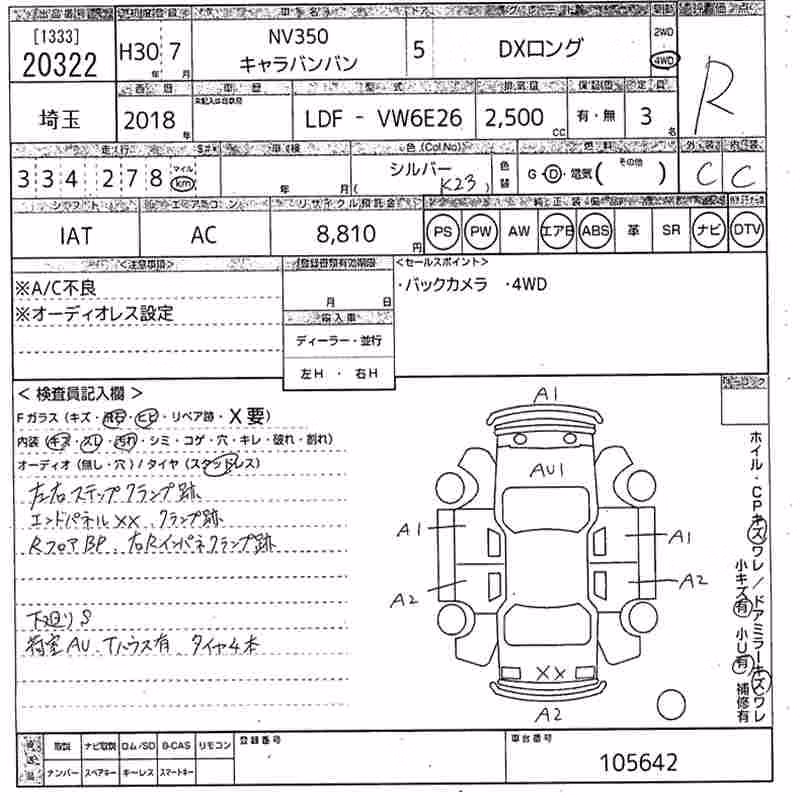 出品番号 初度登録 車名 ドア グレード 駆動 評価点
[1333]
20322
H30年 7月
NV350
キャラバンバン
5
DXロング
2WD
4WD
R
埼玉
西暦
2018年
車歴
未記入は自家用
型式
LDF - VW6E26
排気量
2,500cc
保証書
有・無
定員
3名
走行
334,278
マイル
km
車検
年 月
色(Col No)
シルバー
(K23)
色替
燃料
G・D・電気( その他 )
外装 内装
C C
シフト エアコン リサイクル預託金
IAT AC 8,810円
PS PW AW エアB ABS 革 SR ナビ DTV
<注意事項>
※A/C不良
※オーディオレス設定
登録書類有効期限
月 日
輸入車
ディーラー・並行
左H ・ 右H
<セールスポイント>
・バックカメラ ・4WD
< 検査員記入欄 >
Fガラス(キズ・飛石・ヒビ・リペア跡・X要)
内装(キズ・スレ・汚れ・シミ・コゲ・穴・キレ・破れ・割れ)
オーディオ(無し・穴)/タイヤ(スタッドレス)
左右ステップクランプ跡
エンドパネルXX、クランプ跡
RフロアBP、右Rインパネクランプ跡
下廻りS
荷室AU、Tハウス有 タイヤ4本
A1
AU1
A1 A1
A2 A2
XX
A2
ホイル・CPキズワレ/ドアミラーキズワレ
小キズ有 小U有 補修有
取説 ナビ取説 ロム/SD B-CAS リモコン
ナンバー スペアキー キーレス スマートキー
登録番号
車台番号
105642